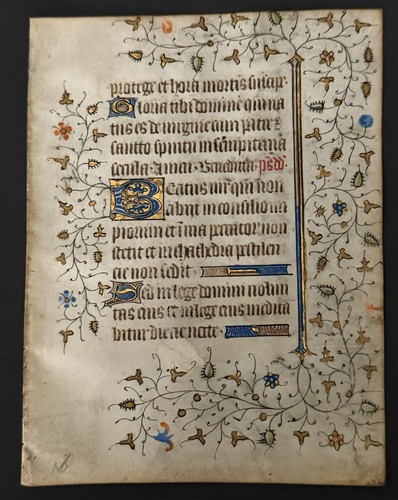 protege et hora mortis suscipe
Gloria tibi domine qui na
tus es de virgine cum patre z
sancto spiritu in sempiterna
secula Amen Benedicta ps̄
BEatus vir qui non
abiit in consilio im
piorum et ī via peccator̄ non
stetit et in cathedra pestilen
cie non sedit
Sed in lege domini volun
tas eius et in lege eius medita
bitur die ac nocte